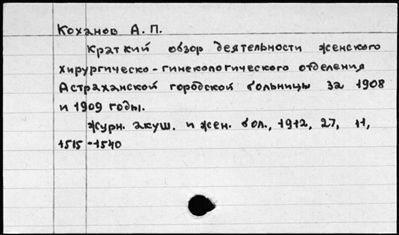 Коханов А. П.
Краткий обзор деятельности женского
хирургическо-гинекологического отделения
Астраханской городской больницы за 1908
и 1909 годы.
Журн. акуш. и жен. бол., 1912, 27, 11,
1515-1540